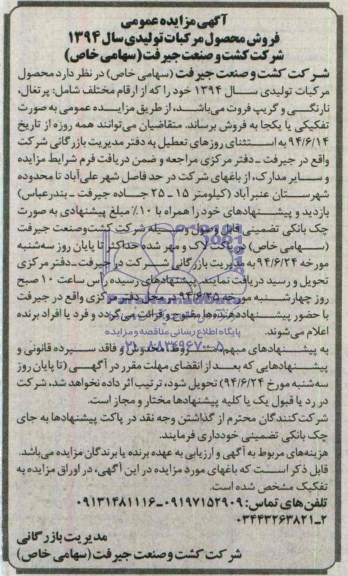 آگهی مزایده عمومی
فروش محصول مرکبات تولیدی سال ۱۳۹۴
شرکت کشت و صنعت جیرفت (سهامی خاص)
شرکت کشت و صنعت جیرفت (سهامی خاص) در نظر دارد محصول
مرکبات تولیدی سال ۱۳۹۴ خود را که از ارقام مختلف شامل: پرتغال،
نارنگی و گریپ فروت می‌باشد، از طریق مزایده عمومی به صورت
تفکیکی یا یکجا به فروش برساند. متقاضیان می‌توانند همه روزه از تاریخ
۹۴/۶/۱۴ به استثنای روزهای تعطیل به دفتر مدیریت بازرگانی شرکت
واقع در جیرفت - دفتر مرکزی مراجعه و ضمن دریافت فرم شرایط مزایده
و سایر مدارک، از باغهای شرکت در حد فاصل شهر علی‌آباد تا محدوده
شهرستان عنبرآباد (کیلومتر ۱۵ - ۲۵ جاده جیرفت - بندرعباس)
بازدید و پیشنهادهای خود را همراه با ۱۰٪ مبلغ پیشنهادی به صورت
چک بانکی تضمینی قابل وصول وسیله شرکت کشت وصنعت جیرفت
(سهامی خاص) لاک و مهر شده حداکثر تا پایان روز سه‌شنبه
مورخه ۹۴/۶/۲۴ به مدیریت بازرگانی شرکت در جیرفت - دفتر مرکزی
تحویل و رسید دریافت نمایند. پیشنهادهای رسیده رأس ساعت ۱۰ صبح
روز چهارشنبه مورخه ۹۴/۶/۲۵ در محل دفتر مرکزی واقع در جیرفت
با حضور پیشنهاددهنده‌ها مفتوح و قرائت می‌گردد و فرد یا افراد برنده
اعلام می‌شوند.
به پیشنهادهای مبهم، مشروط، مخدوش و فاقد سپرده قانونی و
پیشنهادهایی که بعد از انقضای مهلت مقرر در آگهی (تا پایان روز
سه‌شنبه مورخ ۹۴/۶/۲۴) تحویل شود، ترتیب اثر داده نخواهد شد، شرکت
در رد یا قبول یک یا کلیه پیشنهادها مختار و مجاز است.
شرکت‌کنندگان محترم از گذاشتن وجه نقد در پاکت پیشنهادها به جای
چک بانکی تضمینی خودداری فرمایند.
هزینه‌های مربوط به آگهی و ارزیابی به عهده برنده یا برندگان مزایده می‌باشد.
قابل ذکر است که باغهای مورد مزایده در این آگهی، در اوراق مزایده به
تفکیک مشخص شده است.
تلفن‌های تماس: ۰۹۱۹۷۱۵۲۹۰۹-۰۹۱۳۱۴۸۱۱۱۶
۰۳۴۴۳۲۶۳۸۲۱-۲
مدیریت بازرگانی
شرکت کشت وصنعت جیرفت (سهامی خاص)
پایگاه اطلاع رسانی مناقصه و مزایده
۰۲۱-۸۸۳۴۹۶۷۰-۵